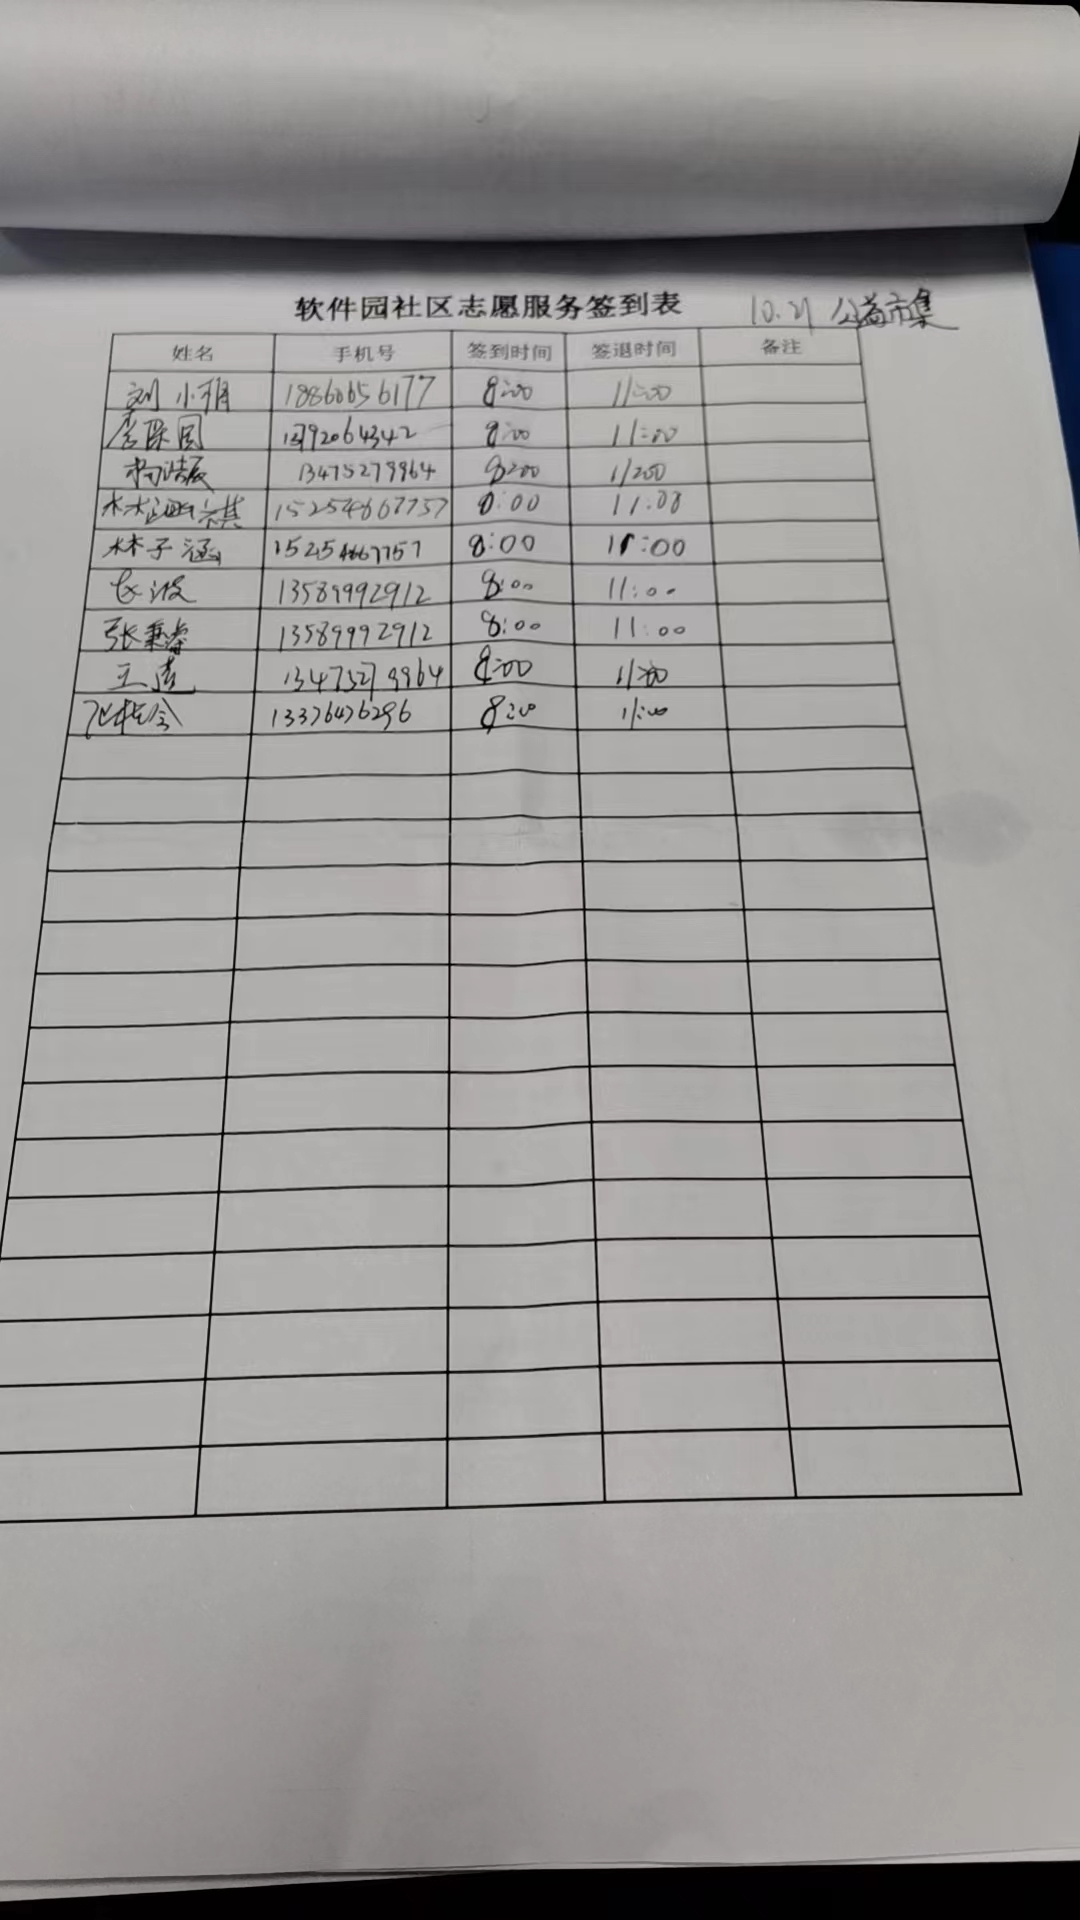 软件园社区志愿服务签到表 10.21 公益市集
姓名 手机号 签到时间 签退时间 备注
刘小雅 18860656177 8:00 11:00
13792064342 8:00 11:00
杨浩辰 13475279964 8:00 11:00
15254667757 8:00 11:00
林子涵 15254667757 8:00 11:00
长波 13589992912 8:00 11:00
张秉睿 13589992912 8:00 11:00
王 13475279964 8:00 11:00
13376476296 8:00 11:00